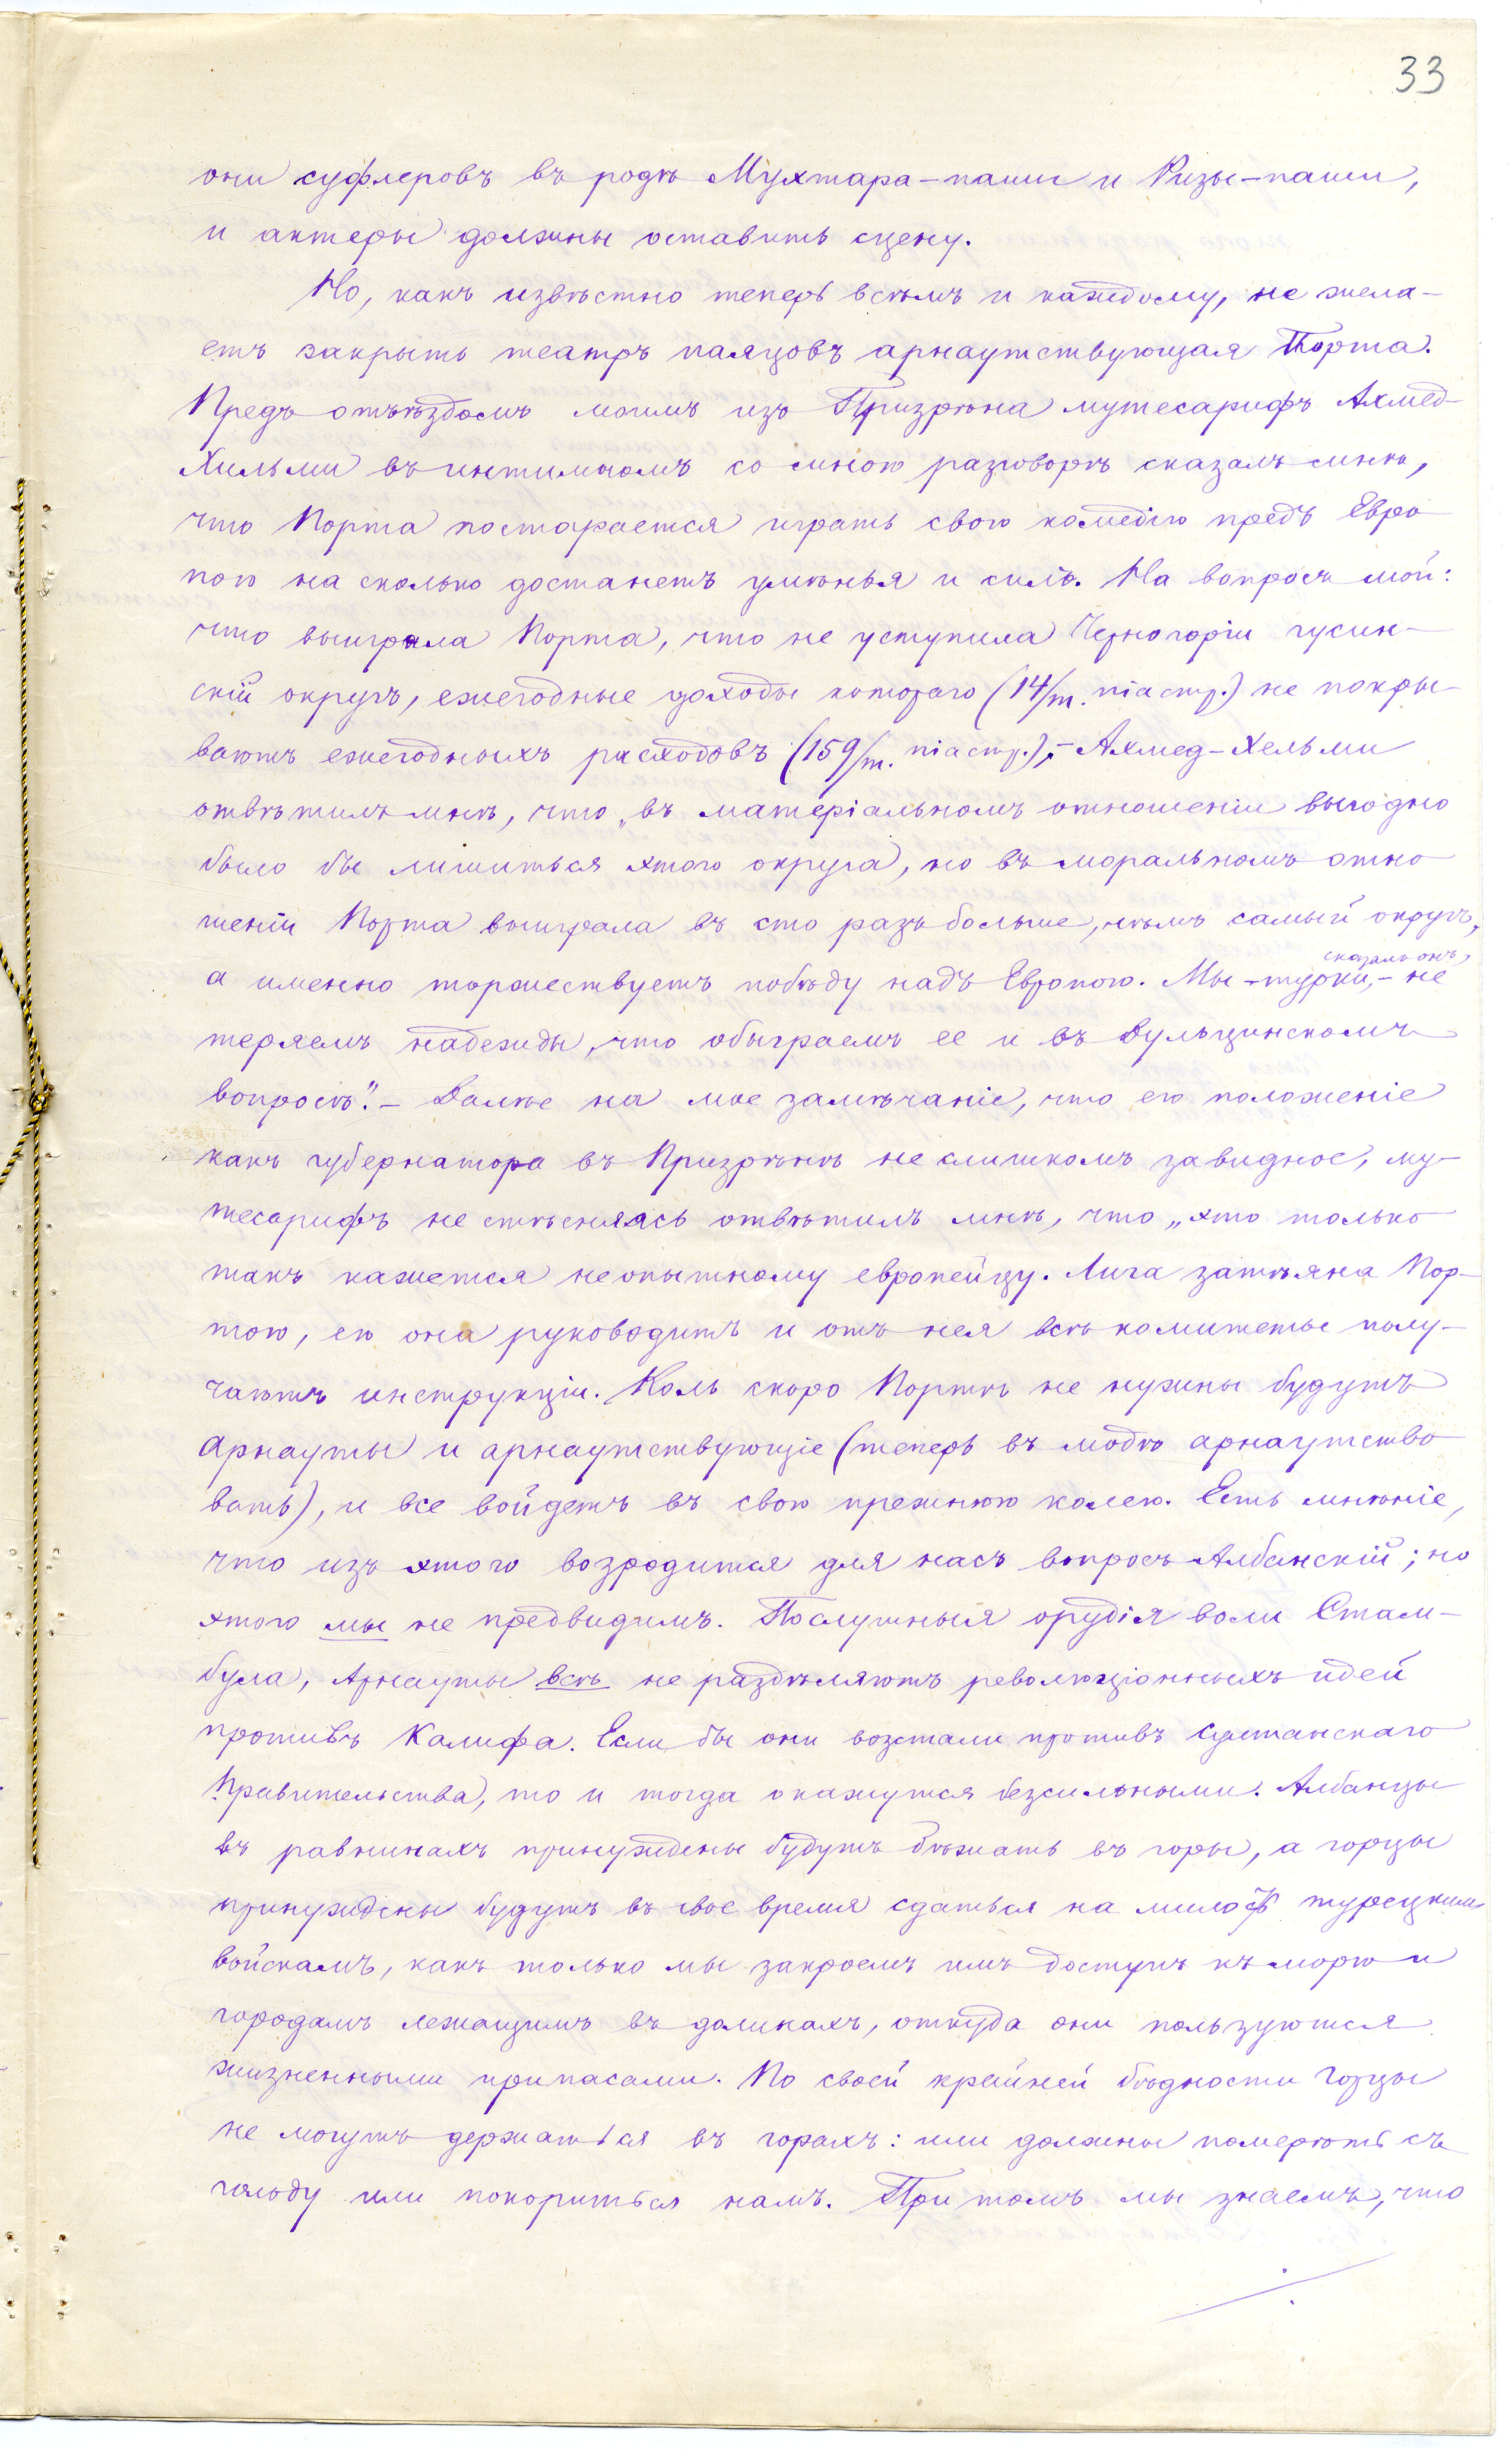 33
они суфлеровъ въ родѣ Мухтара-паши и Ризы-паши,
и актеры должны оставить сцену.
Но, какъ извѣстно теперь всѣмъ и каждому, не жела-
етъ закрыть театръ паяцовъ арнаутствующая Порта.
Предъ отъѣздомъ моимъ изъ Призрѣна мутесарифъ Ахмед-
Хильми въ интимномъ со мною разговорѣ сказалъ мнѣ,
что Порта постарается играть свою комедію предъ Евро
пою на сколько достанетъ умѣнья и силъ. На вопросъ мой:
что выиграла Порта, что не уступила Черногоріи гусин-
скій округъ, ежегодные доходы котораго (14/m. піастр.) не покры-
ваютъ ежегодныхъ расходовъ (159/m. піастр.),- Ахмед-Хельми
отвѣтилъ мнѣ, что „въ матеріальномъ отношеніи выгодно
было бы лишиться этого округа, но въ моральномъ отно
шеніи Порта выиграла въ сто разъ больше, чѣмъ самый округъ,
а именно торжествуетъ побѣду надъ Европою. Мы -турки,- сказалъ онъ, не
теряемъ надежды, что обыграемъ ее и въ Дульцинскомъ
вопросѣ".- Далѣе на мое замѣчаніе, что его положеніе
какъ губернатора въ Призрѣнѣ не слишкомъ завидное, му-
тесарифъ не стѣсняясь отвѣтилъ мнѣ, что „это только
такъ кажется неопытному европейцу. Лига затѣяна Пор-
тою, ею она руководитъ и отъ нея всѣ комитеты полу-
чаютъ инструкціи. Коль скоро Портѣ не нужны будутъ
Арнауты и арнаутствующіе (теперь въ модѣ арнаутство
вать), и все войдетъ въ свою прежнюю колею. Есть мнѣніе,
что изъ этого возродится для насъ вопросъ Албанскій; но
этого мы не предвидимъ. Послушныя орудія воли Стам-
була, Арнауты всѣ не раздѣляютъ революціонныхъ идей
противъ Калифа. Если бы они возстали противъ Султанскаго
Правительства, то и тогда окажутся безсильными. Албанцы
въ равнинахъ принуждены будутъ бѣжать въ горы, а горцы
принуждены будутъ въ свое время сдаться на милость турецкимъ
войскамъ, какъ только мы закроемъ имъ доступъ къ морю и
городамъ лежащимъ въ долинахъ, откуда они пользуются
жизненными припасами. По своей крайней бѣдности Горцы
не могутъ держаться въ горахъ: или должны помереть съ
голоду или покориться намъ. Притомъ мы знаемъ, что